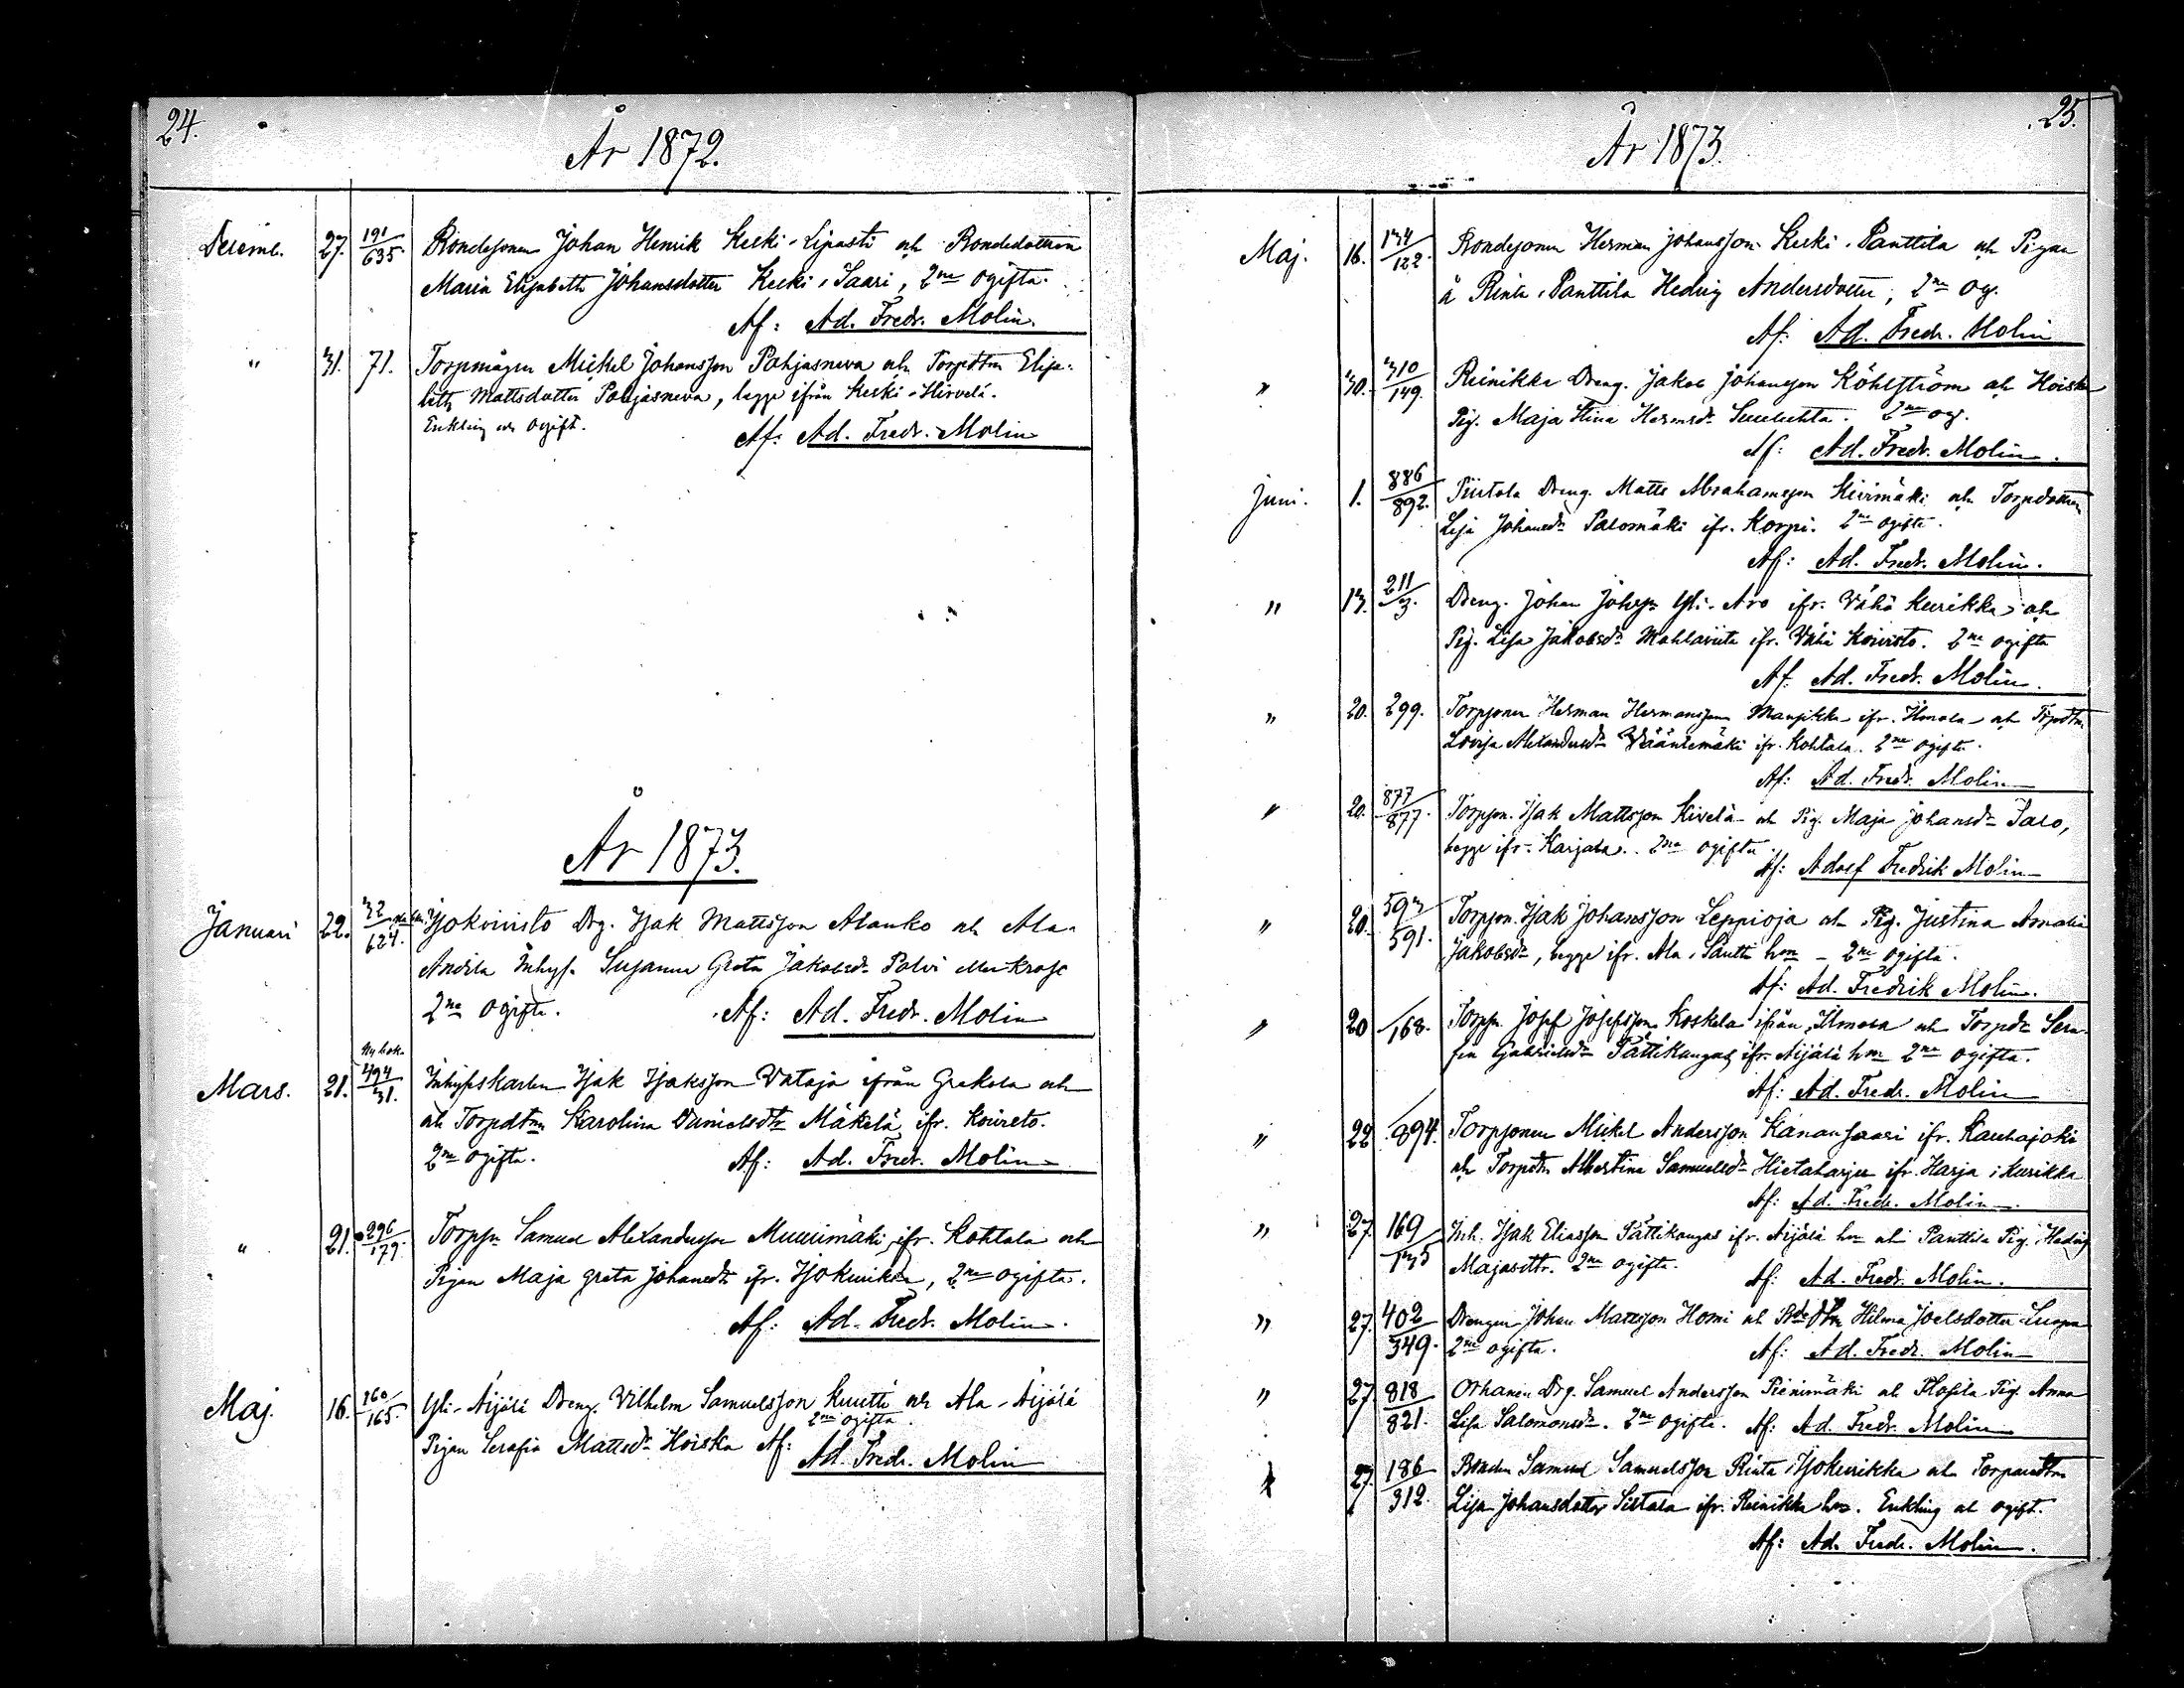 24.
År 1872.
Decemb. 27. 191/635. Bondesonen Johan Henrik Keski-Lipasti och Bondedottren
Maria Elisabeth Johansdotter Keski-Saari, 2ne ogifta.
Af: Ad. Fredr. Molin.
" 31. 71. Torpmågen Mickel Johansson Pohjasneva och Torpdtrn Elisa-
beth Mattsdotter Pohjasneva, begge ifrån Keski-Hirvelä.
Enkling och ogift. Af: Ad. Fredr. Molin
År 1873.
Januari 22. 32/624. Isokoivisto Drg. Isak Mattsson Alanko och Ala-
Andila Inhys. Susanna Greta Jakobsdr Palvi
2ne ogifta. Af: Ad. Fredr. Molin
Mars. 21. 494/31. Inhyseskarlen Isak Isaksson Vataja ifrån Grekola och
och Torpdtrn Karolina Danielsdtr Mäkelä ifr. Koivisto.
2ne ogifta. Af: Ad. Fredr. Molin
" 21. 296/179. Torpsn Samuel Alexandersson Muurimäki ifr. Kohtala och
Pigan Maja Greta Johansdr ifr. Isokurikka, 2ne ogifta.
Af: Ad. Fredr. Molin.
Maj. 16. 160/165. Yli-Äijälä Dreng. Vilhelm Samuelsson Kuutti och Ala-Äijälä
2ne ogifta.
Pigan Serafia Mattsdr Hoiska Af: Ad. Fredr. Molin
25.
År 1873.
Maj. 16. 134/122. Bondesonen Herman Johansson Keski-Panttila och Pigan
å Rinta-Panttila Hedvig Andersdotter, 2ne og.
Af: Ad. Fredr. Molin
" 30. 310/149. Reinikka Dreng. Jakob Johansson Köhlström och Hoiska
Pig. Maja Stina Hermsdr 2ne og.
Af: Ad. Fredr. Molin.
Juni. 1. 886/892. Piirtola Dreng. Matts Abrahamsson Kiirimäki och Torpdottren
Lisa Johansdr Palomäki ifr. Korpi. 2ne ogifta.
Af: Ad. Fredr. Molin.
" 13. 211/3. Dreng. Johan Johssn Yli-Aro ifr. Vähä Kurikka och
Pig. Lisa Jakobsdr ifr. Vähä Koivisto. 2ne ogifta
Af: Ad. Fredr. Molin.
" 20. 299. Torpsonen Herman Hermansson Mansikka ifr. Ilmola och Torpdtrn
Lovisa Alexandersdr Vääntemäki ifr. Kohtala. 2ne ogifta.
Af: Ad. Fredr. Molin
" 20. 877/877. Torpson. Isak Mattsson Kivelä och Pig. Maja Johansdr Salo,
begge ifr. Karjala. 2ne ogifta.
Af: Adolf Fredrik Molin
" 20. 593/591. Torpson. Isak Johansson Leppioja och Pig. Justina Amalia
Jakobsdr, begge ifr. Ala-Säntti hmn - 2ne ogifta.
Af: Ad. Fredrik Molin.
" 20 168. Torpsn. Josef Josefsson Koskela ifrån Ilmola och Torpdr Sera-
fia Gabrielsdr Pättikangas ifr. Äijälä hmn 2ne ogifta.
Af: Ad. Fredr. Molin
" 22 894. Torpsonen Mickel Andersson Kanansaari ifr. Kauhajoki
och Torpdtr Albertina Samuelsdr Hietaharju ifr. Harja i Kurikka
Af: Ad. Fredr. Molin.
" 27 169/135 Inh. Isak Eliasson Pättikangas ifr. Äijälä hm och Panttila Pig. Hedvig
Majasdtr. 2ne ogifta. Af: Ad. Fredr. Molin.
" 27. 402/349. Drengen Johan Mattsson Homi och Bdedtrn Hilma Joelsdotter
2ne ogifta. Af: Ad. Fredr. Molin
" 27 818/821. Orhanen Drg. Samuel Andersson Pienimäki och Plosila Pig. Anna
Lisa Salomonsdr. 2ne ogifta. Af: Ad. Fredr. Molin
" 27. 186/312. Bonden Samuel Samuelsson Rinta-Isokurikka och Torparedtrn
Lisa Johansdotter Sistala ifr. Reinikka hm. Enkling och ogift.
Af: Ad. Fredr. Molin.